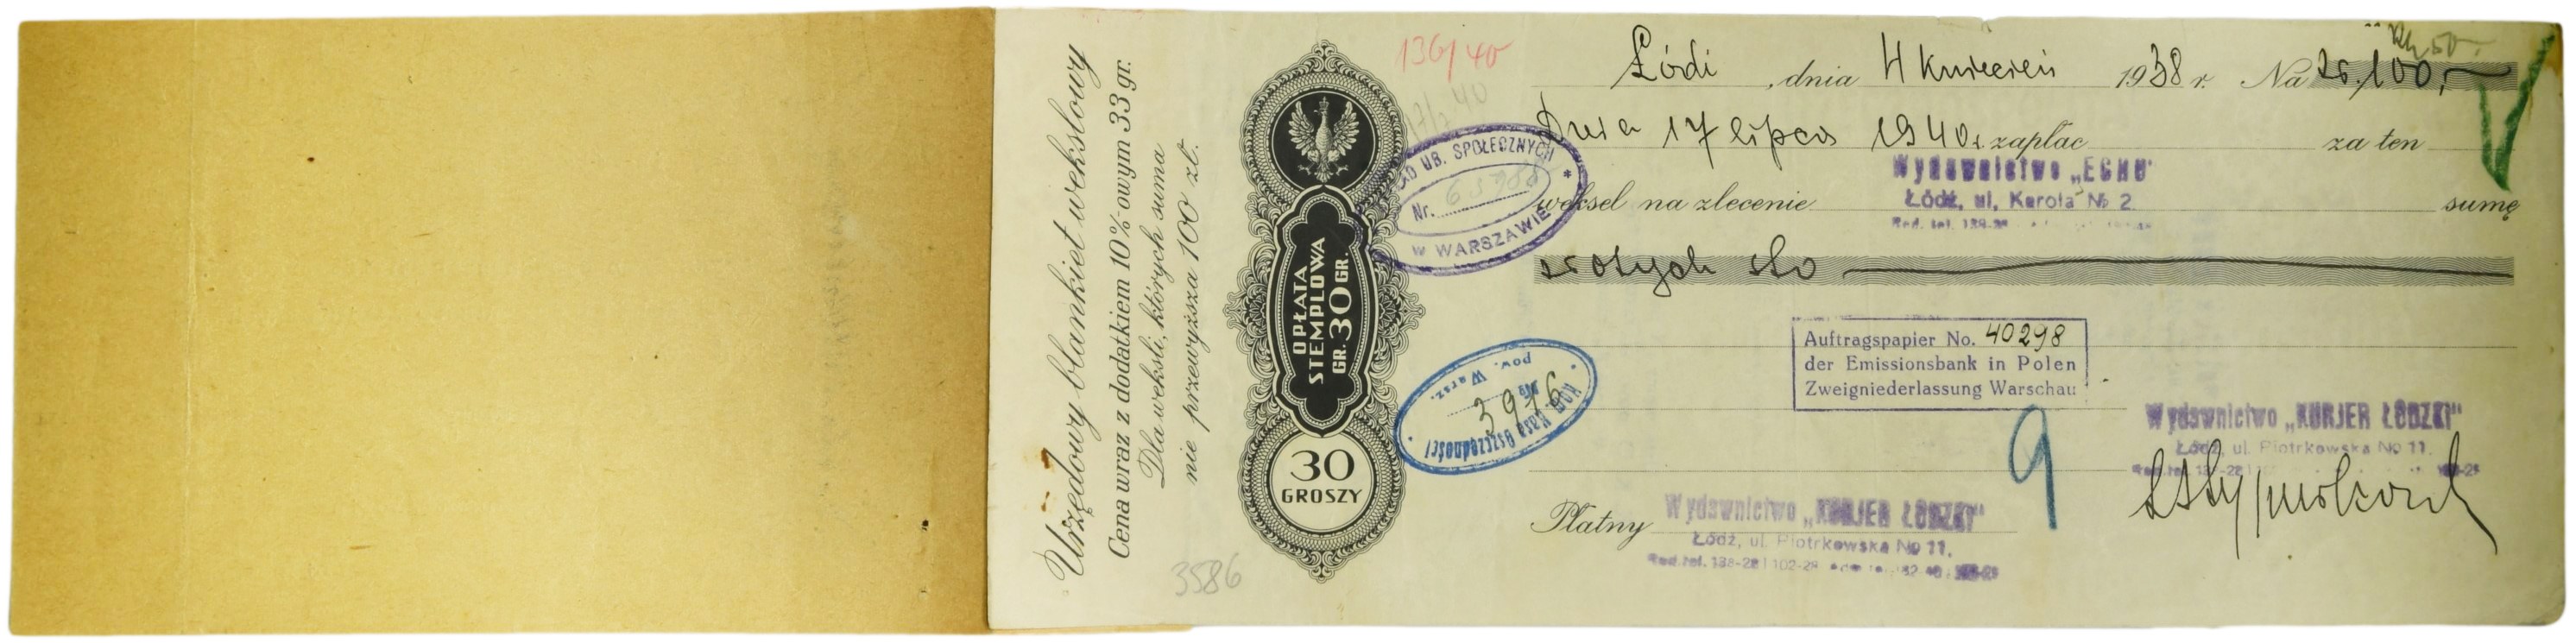 Urzędowy blankiet wekslowy
Cena wraz z dodatkiem 10%-owym 33 gr.
Dla weksli, których suma
nie przewyższa 100 zł.
OPŁATA
STEMPLOWA
GR. 30 GR.
30
GROSZY
3586
136/40
Łódź, dnia 4 kwiecień 1938 r. Na zł. 100,-
50-
Dnia 17 lipca 1940 r. zapłac za ten
UB. SPOŁECZNYCH
Nr.
w WARSZAWIE
weksel na zlecenie
Wydawnictwo „ECHO"
Łódź, ul. Karola № 2
sumę
złotych sto
Auftragspapier No. 40298
der Emissionsbank in Polen
Zweigniederlassung Warschau
Kom. Kasa Oszczędności
3976
pow. Warsz.
9
Wydawnictwo „KURJER ŁÓDZKI"
Łódź, ul. Piotrkowska № 11.
Płatny
Wydawnictwo „KURJER ŁÓDZKI"
Łódź, ul. Piotrkowska № 11.
Red. tel. 138-28 i 102-28